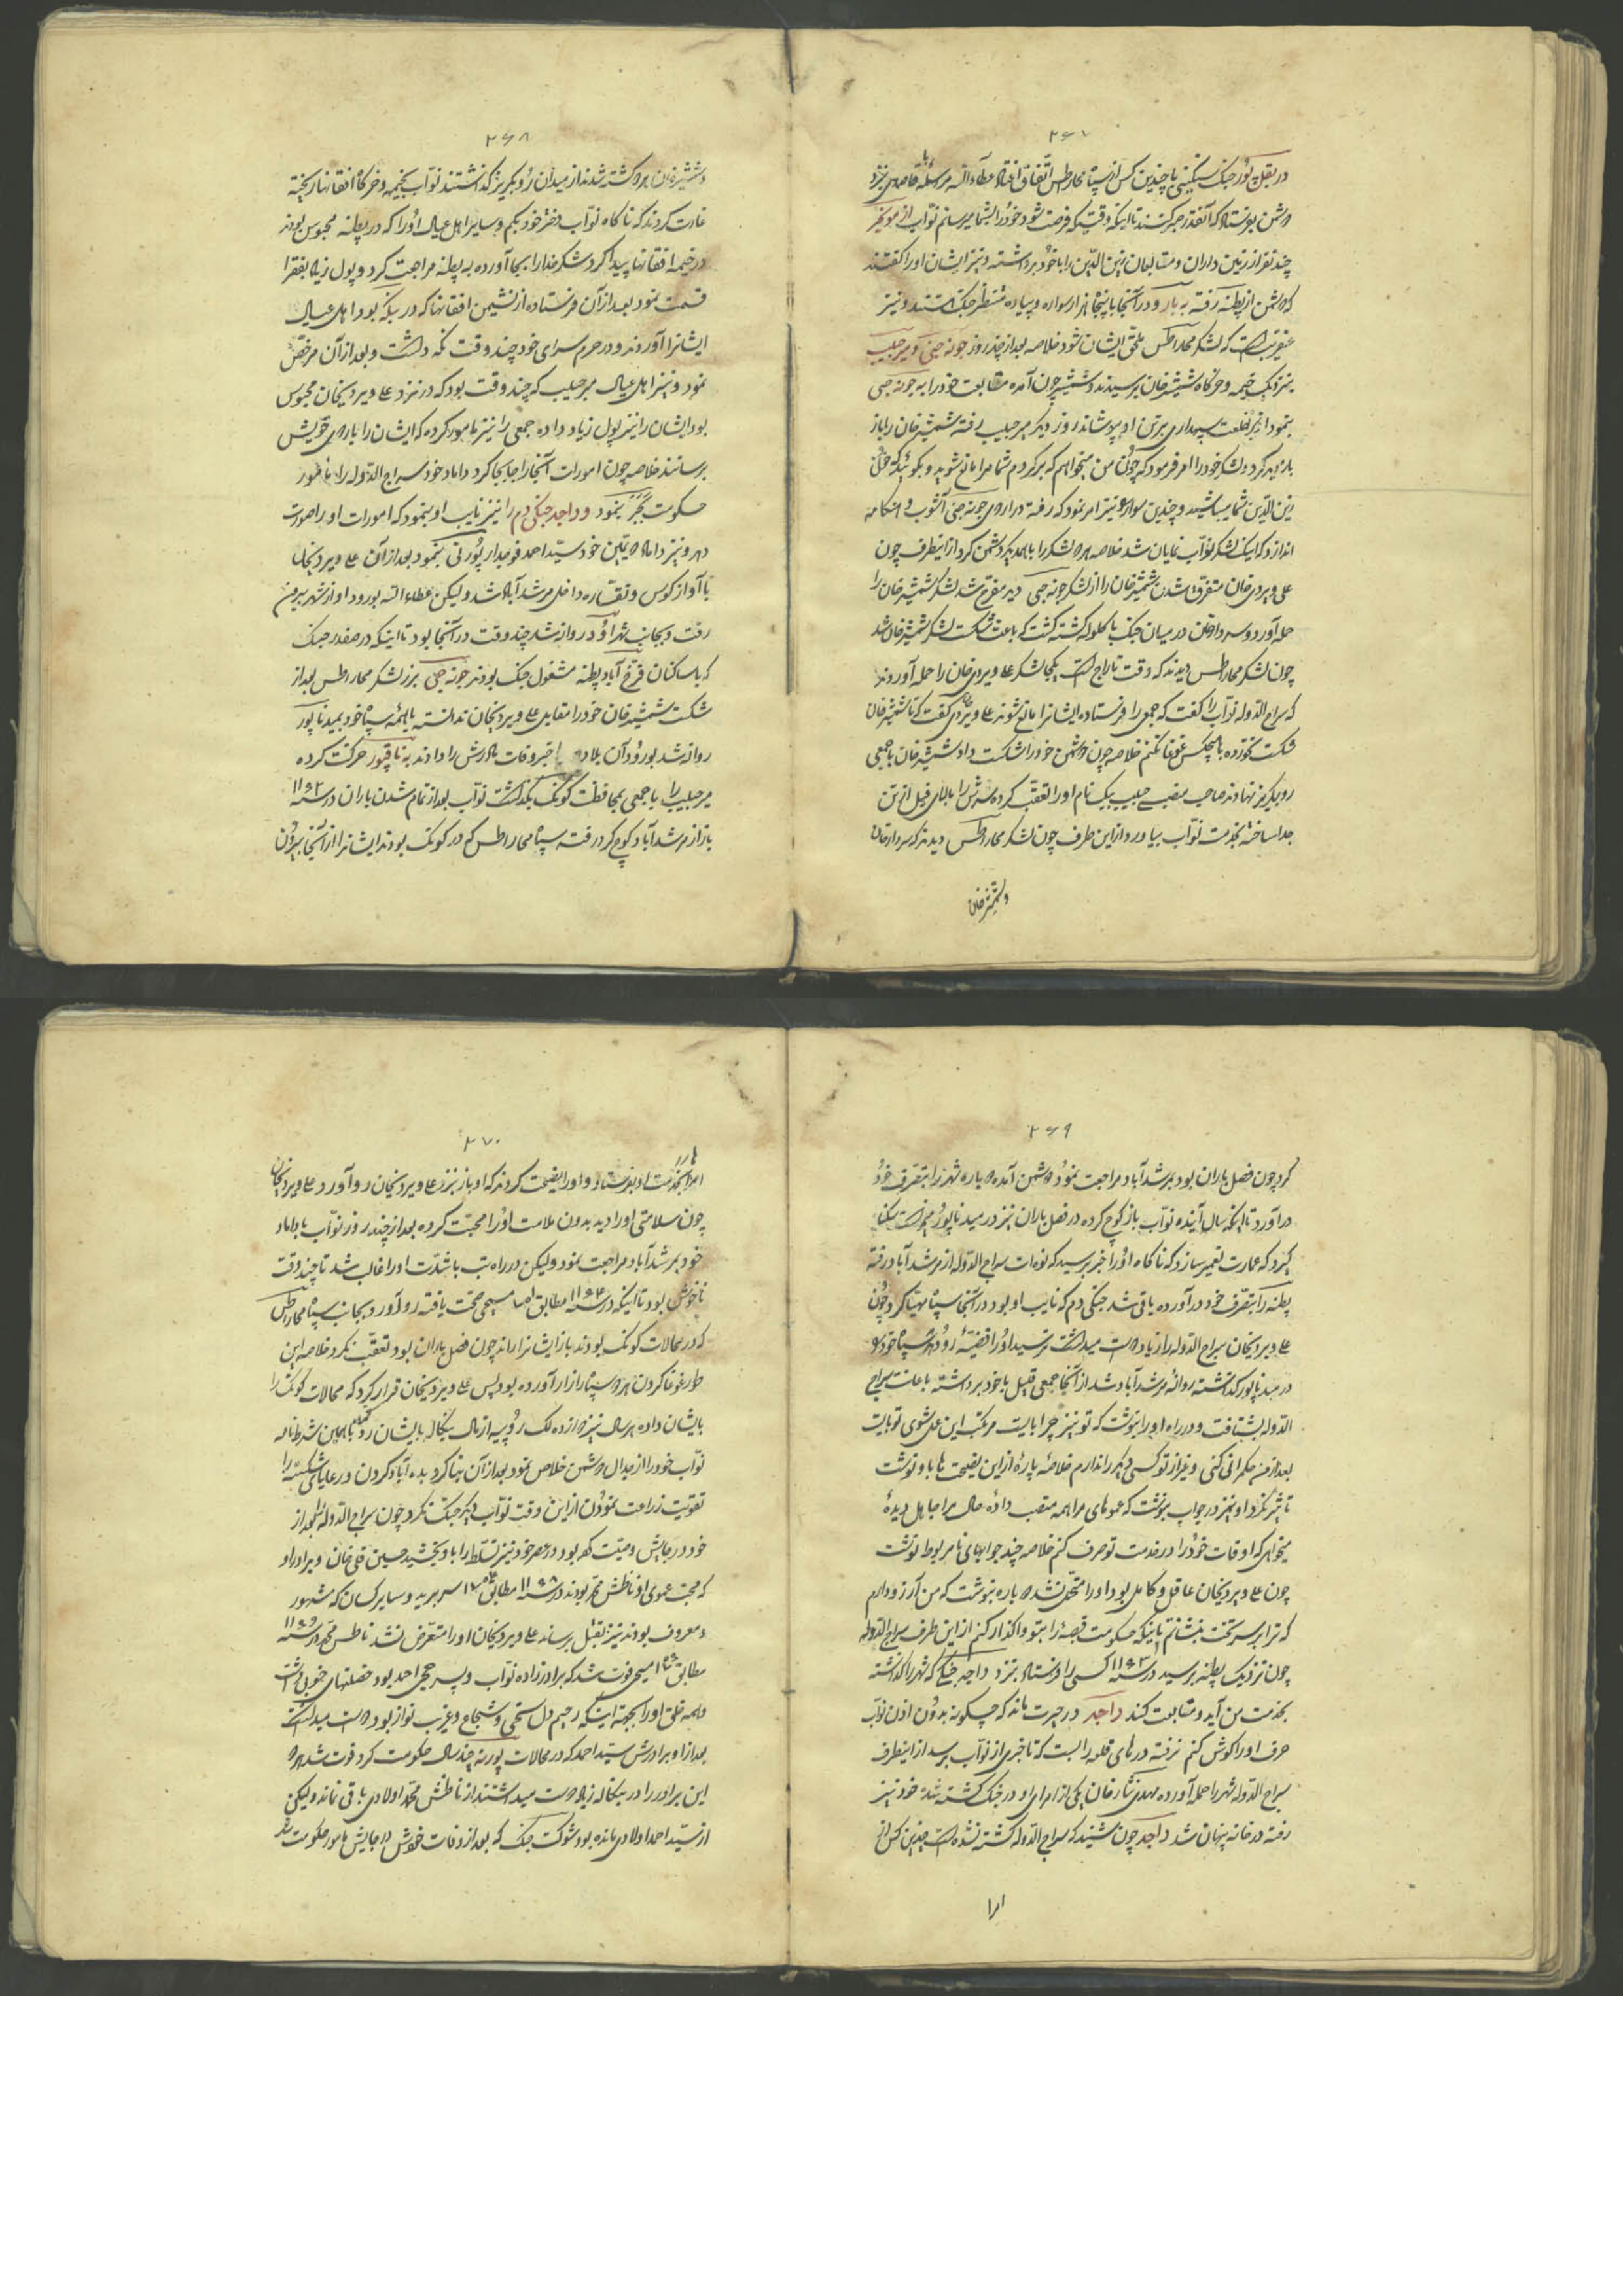 ۲۶۷
در بقل پور جنک سنکینی با چندین کس از سپاه محاراطس اتفاق افتاد عطاءالله مراسله با قاصدی بنزد
دشمن بفرستاد که آنقدر صبر کنند تا اینکه وقتیکه فرصت شود خود را بشما میرسانم نواب از مونکیر
چند نفر از زمین داران و متابعان زین الدین را با خود برداشته و نیز ایشان اورا کفتند
که دشمن از پطنه رفته به بار و در آنجا با پنجاه هزار سواره و پیاده منتظر جنک هستند و نیز
عنقریب است که لشکر محاراطس ملحق ایشان شود خلاصه بعد از چند روز جونه جی و میر حبیب
بنزدیک خیمه و خرکاه شمشیر خان برسیدند و شمشیر چون آمده متابعت خود را به جونه جی
بنمود او نیز خلعت سپهداری بر تن او بپوشاند روز دیکر میر حبیب رفته شمشیر خان را باز
بازدید کرد و لشکر خود را امر فرمود که چون من میخواهم که برکردم شما مرا مانع شوید و بکوئید که خون
زین الدین شما میباشید و چندین سواره نیز امر نمود که رفته در اردوی جونه جی آشوب و هنکامه
اندازد که اینک لشکر نواب نمایان شد خلاصه هر دو لشکر را با همدیکر دشمن کرد از اینطرف چون
علی ویردی خان متفرق شدن شمشیر خان را از لشکر جونه جی دید مفرح شد لشکر شمشیر خان را
حمله آورد و سردار خان در میان جنک با کلوله کشته کشت که باعث شکست لشکر شمشیر خان شد
چون لشکر محاراطس دیدند که وقت تاراج است یکجا لشکر علی ویردی خان را حمله آوردند
که سراج الدوله نواب را کفت که جمعی را فرستاده ایشانرا مانع شوند علی ویردی کفت که تا شمشیر خان
شکست نخورده با هیچکس غوغا نکنم خلاصه چون دشمن خود را شکست داد شمشیر خان با جمعی
رو بکریز نهادند صاحب منصبی حبیب بیک نام اورا تعقب کرده سرش را بالای فیل از تن
جدا ساخته بخدمت نواب بیاورد از این طرف چون لشکر محاراطس دیدند که سردار خان
و شمشیر خان
۲۶۸
و شمشیر خان هر دو کشته شدند از میدان رو بکریز کذاشتند نواب بخیمه و خرکاه افغانها ریخته
غارت کردند که ناکاه نواب دختر خود بیکم و سایر اهل عیال اورا که در پطنه محبوس بودند
در خیمه افغانها پیدا کرد شکر خدا را بجا آورده به پطنه مراجعت کرد و پول زیاد بفقرا
قسمت نمود بعد از آن فرستاده از نشیمن افغانها که در بنکه بود اهل عیال
ایشانرا آوردند و در حرم سرای خود چند وقت نکه داشت و بعد از آن مرخص
نمود و نیز اهل عیال میر حبیب که چند وقت بود که در نزد علی ویردیخان محبوس
بود ایشان را نیز پول زیاد داده جمعی را نیز مامور کرده که ایشان را باردوی خویش
برسانند خلاصه چون امورات آنجا را جابجا کرد داماد خود سراج الدوله را مامور
حکومت بنمود و راجه جنکی دم را نیز نایب او بنمود که امورات او را صورت
دهد و نیز داماد دیمین خود سید احمد فوجدار پورنی بنمود بعد از آن علی ویردیخان
با آواز کوس و نقاره داخل مرشد آباد شد ولیکن عطاء الله بورود او از شهر بیرون
رفت و بجانب شهر اوُد روانه شد چند وقت در آنجا بود تا اینکه در صفدر جنک
که با ساکنان فرخ آباد پطنه مشغول جنک بودند جونه جی سر لشکر محاراطس بعد از
شکست شمشیر خان خود را مقابل علی ویردیخان ندانسته با همه سپاه خود بمیدناپور
روانه شد بورود آن بلاد خبر وفات مادرش را دادند به ناقپور حرکت کرده
میر حبیب را با جمعی بمحافظت کوتک بکذاشت نواب بعد از تمام شدن باران در سنه ۱۱۶۲
باز از مرشد آباد کوچ کرد رفت سپاه محاراطس که در کوتک بودند ایشانرا از آنجا بیرون
۲۶۹
کرد چون فصل باران بود بمرشد آباد مراجعت نمود دشمن آمده دوباره شهر را بتصرف خود
در آورد تا اینکه سال آینده نواب باز کوچ کرده در فصل باران نیز در میدناپور میخواست سکنا
کیرد که عمارت تعمیر سازد که ناکاه اورا خبر برسید که نوه ات سراج الدوله از مرشد آباد رفته
پطنه را بتصرف خود در آورده یاقی شد جنکی دم که نایب او بود در آنجا سپاه مهیا کرد چون
علی ویردیخان سراج الدوله را زیاد دوست میداشت بترسید اورا قضیه رو دهد سپاه خود را
در میدناپور کذاشته روانه مرشد آباد شد از آنجا جمعی قلیل با خود برداشته باعانت سراج
الدوله بشتافت و در راه اورا بنوشت که تو نیز چرا بایست مرتکب این عمل شوی تو بایست
بعد از من حکمرانی کنی و غیر از تو کسی دیکر را ندارم خلاصه پاره از این نصیحت ها باو نوشت
تاثیر نکرد او نیز در جواب بنوشت که عموهای مرا همه منصب داده حال مرا جاهل دیده
میخواهی که اوقات خود را در خدمت تو صرف کنم خلاصه چند جوابهای نامربوط نوشت
چون علی ویردیخان عاقل و کامل بود اورا متحمل شده دوباره بنوشت که من آرزو دارم
که ترا بر سر تخت بنشانم تا اینکه حکومت قبضه را بتو واکذار کنم از این طرف سراج الدوله
چون نزدیک پطنه برسید در سنه ۱۱۶۳ کسی را فرستاد بنزد راجه جنکی که شهر را کذاشته
بخدمت من آید و متابعت کند راجه در حیرت ماند که چکونه بدون اذن نواب
حرف اورا کوش کنم نرفته درهای قلعه را بست که تا خبری از نواب برسد از اینطرف
سراج الدوله شهر را حمله آورده مهدی نثار خان یکی از امرای او در جنک کشته شد خود نیز
رفته در خانه پنهان شد راجه چون شنید که سراج الدوله کشته نشده است چندین کس از
امرا
۲۷۰
امرا را بخدمت او بفرستاد و اورا نصیحت کردند که او باز بنزد علی ویردیخان رو آورد علی ویردیخان
چون سلامتی اورا دید بدون ملامت اورا محبت کرده بعد از چند روز نواب با داماد
خود بمرشد آباد مراجعت نمود ولیکن در راه تب با شدت اورا غالب شد تا چند وقت
ناخوش بود تا اینکه در سنه ۱۱۶۴ مطابق ۱۷۵۱ مسیحی صحت یافته رو آورد بجانب سپاه محاراطس
که در محالات کوتک بودند باز ایشانرا راند چون فصل باران بود تعقب نکرد خلاصه این
طور غوغا کردن هر دو سپاه را زار آورده بود پس علی ویردیخان قرار کرد که محالات کوتک را
بایشان داده هر سال نیز دوازده لک روپیه از مال بنکاله بایشان رد کند با همین شرطنامه
نواب خود را از جدال دشمن خلاص نمود بعد از آن بنا کرد بده آباد کردن و رعایای شکسته را
تقویت زراعت نمودن از این وقت نواب دیکر جنک نکرد چون سراج الدوله را بعد از
خود در جایش وصیت کرد بود در عصر خود نیز تسلط را باو بخشید حسین قلی خان و برادر او
که محب عموی او ناطش محمد بودند در سنه ۱۱۶۸ مطابق ۱۷۵۴ سر ببرید و سایر کسان که مشهور
و معروف بودند نیز بقتل برساند علی ویردیخان اورا متعرض نشد ناطس محمد در سنه ۱۱۶۹
مطابق ۱۷۵۶ مسیحی فوت شد که برادرزاده نواب و پسر حجی احمد بود خصلتهای خوبی داشت
و همه خلق اورا بجهته اینکه رحیم دل و سخی و شجاع و غریب نواز بود دوست میداشت
بعد از او برادرش سید احمد که در محالات پورنیه چند سال حکومت کرد فوت شد هر دو
این برادر را در بنکاله زیاد دوست میداشتند از ناطش محمد اولادی باقی نماند ولیکن
از سید احمد اولادی مانده بود شوکت جنک که بعد از وفات خودش در جایش مامور حکومت شد